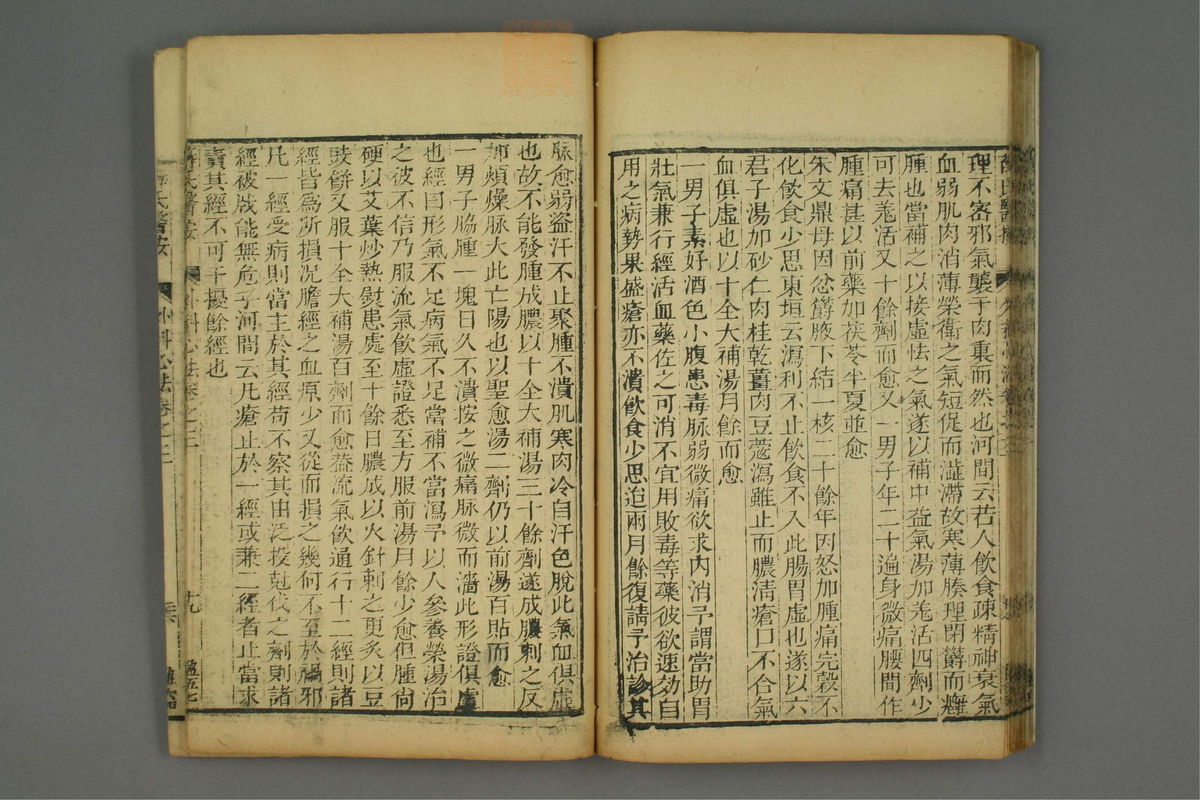 理不密邪氣襲于肉裏而然也河間云若人飲食疎精神衰氣
血弱肌肉消薄榮衛之氣短促而澁滯故寒薄腠理閉欝而為癰
腫也當補之以接虛怯之氣遂以補中益氣湯加羗活四劑少
可去羗活又十餘劑而愈又一男子年二十遍身微痛腰間作
腫痛甚以前藥加茯苓半夏並愈
朱文鼎母因忿欝腋下結一核二十餘年因怒加腫痛完穀不
化飲食少思東垣云瀉利不止飲食不入此腸胃虛也遂以六
君子湯加砂仁肉桂乾薑肉豆蔻瀉雖止而膿清瘡口不合氣
血俱虛也以十全大補湯月餘而愈
一男子素好酒色小腹患毒脉弱微痛欲求内消予謂當助胃
壯氣兼行經活血藥佐之可消不宜用敗毒等藥彼欲速効自
用之病勢果盛瘡亦不潰飲食少思迨兩月餘復請予治診其
脉愈弱盗汗不止聚腫不潰肌寒肉冷自汗色脫此氣血俱虛
也故不能發腫成膿以十全大補湯三十餘劑遂成膿刺之反
加煩燥脉大此亡陽也以聖愈湯二劑仍以前湯百貼而愈
一男子脇腫一塊日久不潰按之微痛脉微而濇此形證俱虛
也經曰形氣不足病氣不足當補不當瀉予以人參養榮湯治
之彼不信乃服流氣飲虛證悉至方服前湯月餘少愈但腫尚
硬以艾葉炒熱熨患處至十餘日膿成以火針刺之更灸以豆
豉餅又服十全大補湯百劑而愈葢流氣飲通行十二經則諸
經皆為所損况膽經之血原少又從而損之幾何不至於禍邪
凡一經受病則當主於其經苟不察其由泛投尅伐之劑則諸
經被戕能無危乎河間云凡瘡止於一經或兼二經者止當求
責其經不可干擾餘經也
薛氏醫按
外科心法卷之三
十九